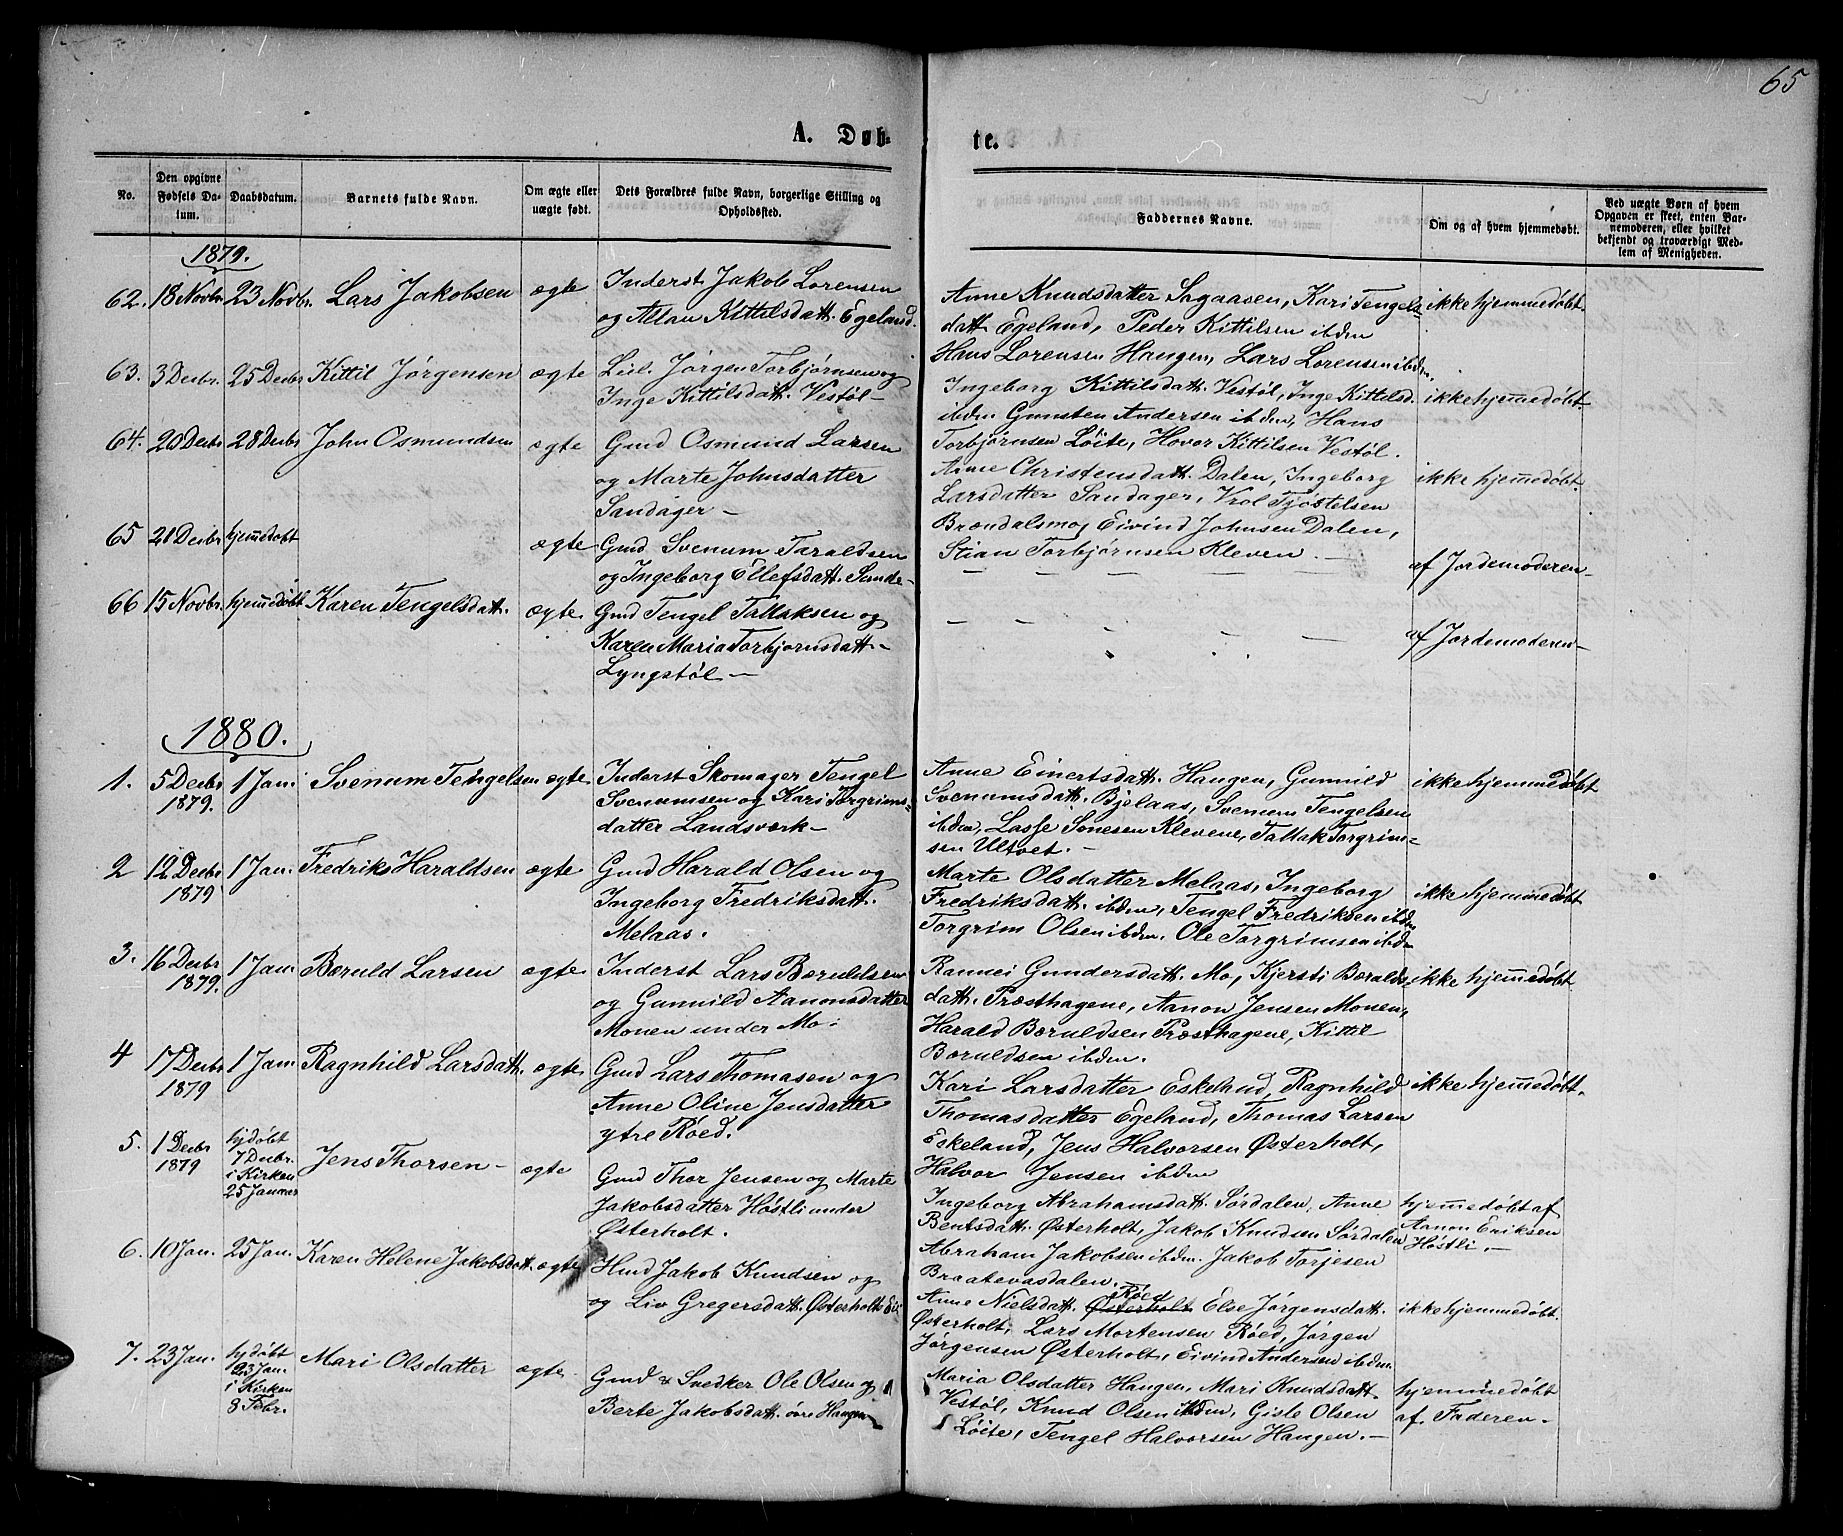 65
A. Døb-
te.
No.
Den opgivne Fødsels Da-
tum.
Daabsdatum.
Barnets fulde Navn.
Om ægte eller
uægte født.
Dets Forældres fulde Navn, borgerlige Stilling og
Opholdssted.
Faddernes Navne.
Om og af hvem hjemmedøbt.
Ved uægte Børn af hvem
Opgaven er skeet, enten Bar-
nemoderen, eller hvilket
bekjendt og troværdigt Med-
lem af Menigheden.
1879.
62. 18 Novbr. 23 Novbr. Lars Jakobsen ægte
Inderst Jakob Lorensen
og Allau Kittilsdatt. Egeland.
Anne Knudsdatter Sagaasen, Kari Tengels-
datt. Egeland, Peder Kittilsen ibden
Hans Lorensen Haugen, Lars Lorensen ibden.
ikke hjemmedøbt.
63. 3 Decbr. 25 Decbr Kittil Jørgensen ægte
Leil. Jørgen Torbjørnsen og
Inge Kittilsdatt. Vestøl-
Ingeborg Kittilsdatt. Vestøl, Inge Kittilsd.
ibden Gunsten Andersen ibden, Hans
Torbjørnsen Løite, Hover Kittilsen Vestøl.
ikke hjemmedøbt.
64. 20 Decbr 28 Decbr John Osmundsen ægte
Gmd Osmund Larsen
og Marte Johnsdatter
Sandager-
Anne Christensdatt. Dalen, Ingeborg
Larsdatter Sandager, Vrol Tjøstelsen
Brændalsmo, Eivind Johnsen Dalen,
Stian Torbjørnsen Kleven. -
ikke hjemmedøbt.
65 21 Decbr hjemmedøbt ægte
Gmd Svenum Taraldsen
og Ingeborg Ellefsdatt. Sande-
- - - - -
af Jordemoderen-
66 15 Novbr hjemmedøbt Karen Tengelsdatt. ægte
Gmd Tengel Tallaksen og
Karen Maria Torbjørnsdatt-
Lyngstøl-
- - - - -
af Jordemoderen-
1880.
1. 5 Decbr
1879. 1 Jan. Svenum Tengelsen ægte
Inderst Skomager Tengel
Svenumsen og Kari Torgrims-
datter Landsverk-
Anne Einertsdatt. Haugen, Gunnild
Svenumsdatt. Bjelaas, Svenum Tengelsen
ibden, Lasse Sinesen Klevene, Tallak Torgrim-
sen Ultvet.-
ikke hjemmedøbt
2 12 Decbr
1879 1 Jan. Fredriks Haraldsen ægte
Gmd Harald Olsen og
Ingeborg Fredriksdatt.
Melaas.
Marte Olsdatter Melaas, Ingeborg
Fredriksdatt. ibden, Tengel Fredriksen ibden
Torgrim Olsen ibden. Ole Torgrimsen ibden
ikke hjemmedøbt
3. 16 Decbr
1879. 1 Jan. Bæruld Larsen ægte
Inderst Lars Bæruldsen
og Gunnild Aanonsdatter
Monen under Mo.
Rannei Gundersdatt. Mo, Kjersti Børalds-
datt. Præsthagene, Aanon Jensen Monen,
Harald Bæruldsen Præsthagene, Kittil
Bæruldsen ibden.
ikke hjemmedøbt
4 17 Decbr
1879 1 Jan. Ragnhild Larsdatt. ægte
Gmd Lars Thomasen og
Anne Oline Jensdatter
ytre Røed.
Kari Larsdatter Eskelund, Ragnhild
Thomasdatter Egeland, Thomas Larsen
Eskeland, Jens Halvorsen Østerholt,
Halvor Jensen ibden
ikke hjemmedøbt.
5. 1 Decbr
1879
hjdøbt
7 Decbr.
i Kirken
25 Januar
Jens Thorsen- ægte
Gmd Thor Jensen og Marte
Jakobsdatter Høstli under
Østerholt.
Ingeborg Abrahamsdatt. Sørdalen, Anne
Bentsdatt. Østerholt, Jakob Knudsen Sørdalen
Abraham Jakobsen ibden. Jakob Torjesen
Braatevasdalen.
hjemmedøbt af
Aanon Eriksen
Høstli.-
6. 10 Jan. 25 Jan. Karen Helene Jakobsdatt. ægte
Hmd Jakob Knudsen og
og Liv Gregersdatt. Østerholts Eie
Røed
Anne Nielsdatt. Østerholt Else Jørgensdatt.
Østerholt, Lars Mortensen Røed, Jørgen
Jørgensen Østerholt, Eivind Andersen ibden.
ikke hjemmedøbt.
7. 23 Jan.
hjdøbt
23 Jan.
i Kirken
8 Febr.
Mari Olsdatter ægte
Gmd & Snedker Ole Olsen og
Berte Jakobsdatt. øvre Haugen
Maria Olsdatter Haugen, Mari Knudsdatt
Vestøl, Knud Olsen ibden, Gisle Olsen
Løite, Tengel Halvorsen Haugen.-
hjemmedøbt
af Faderen-